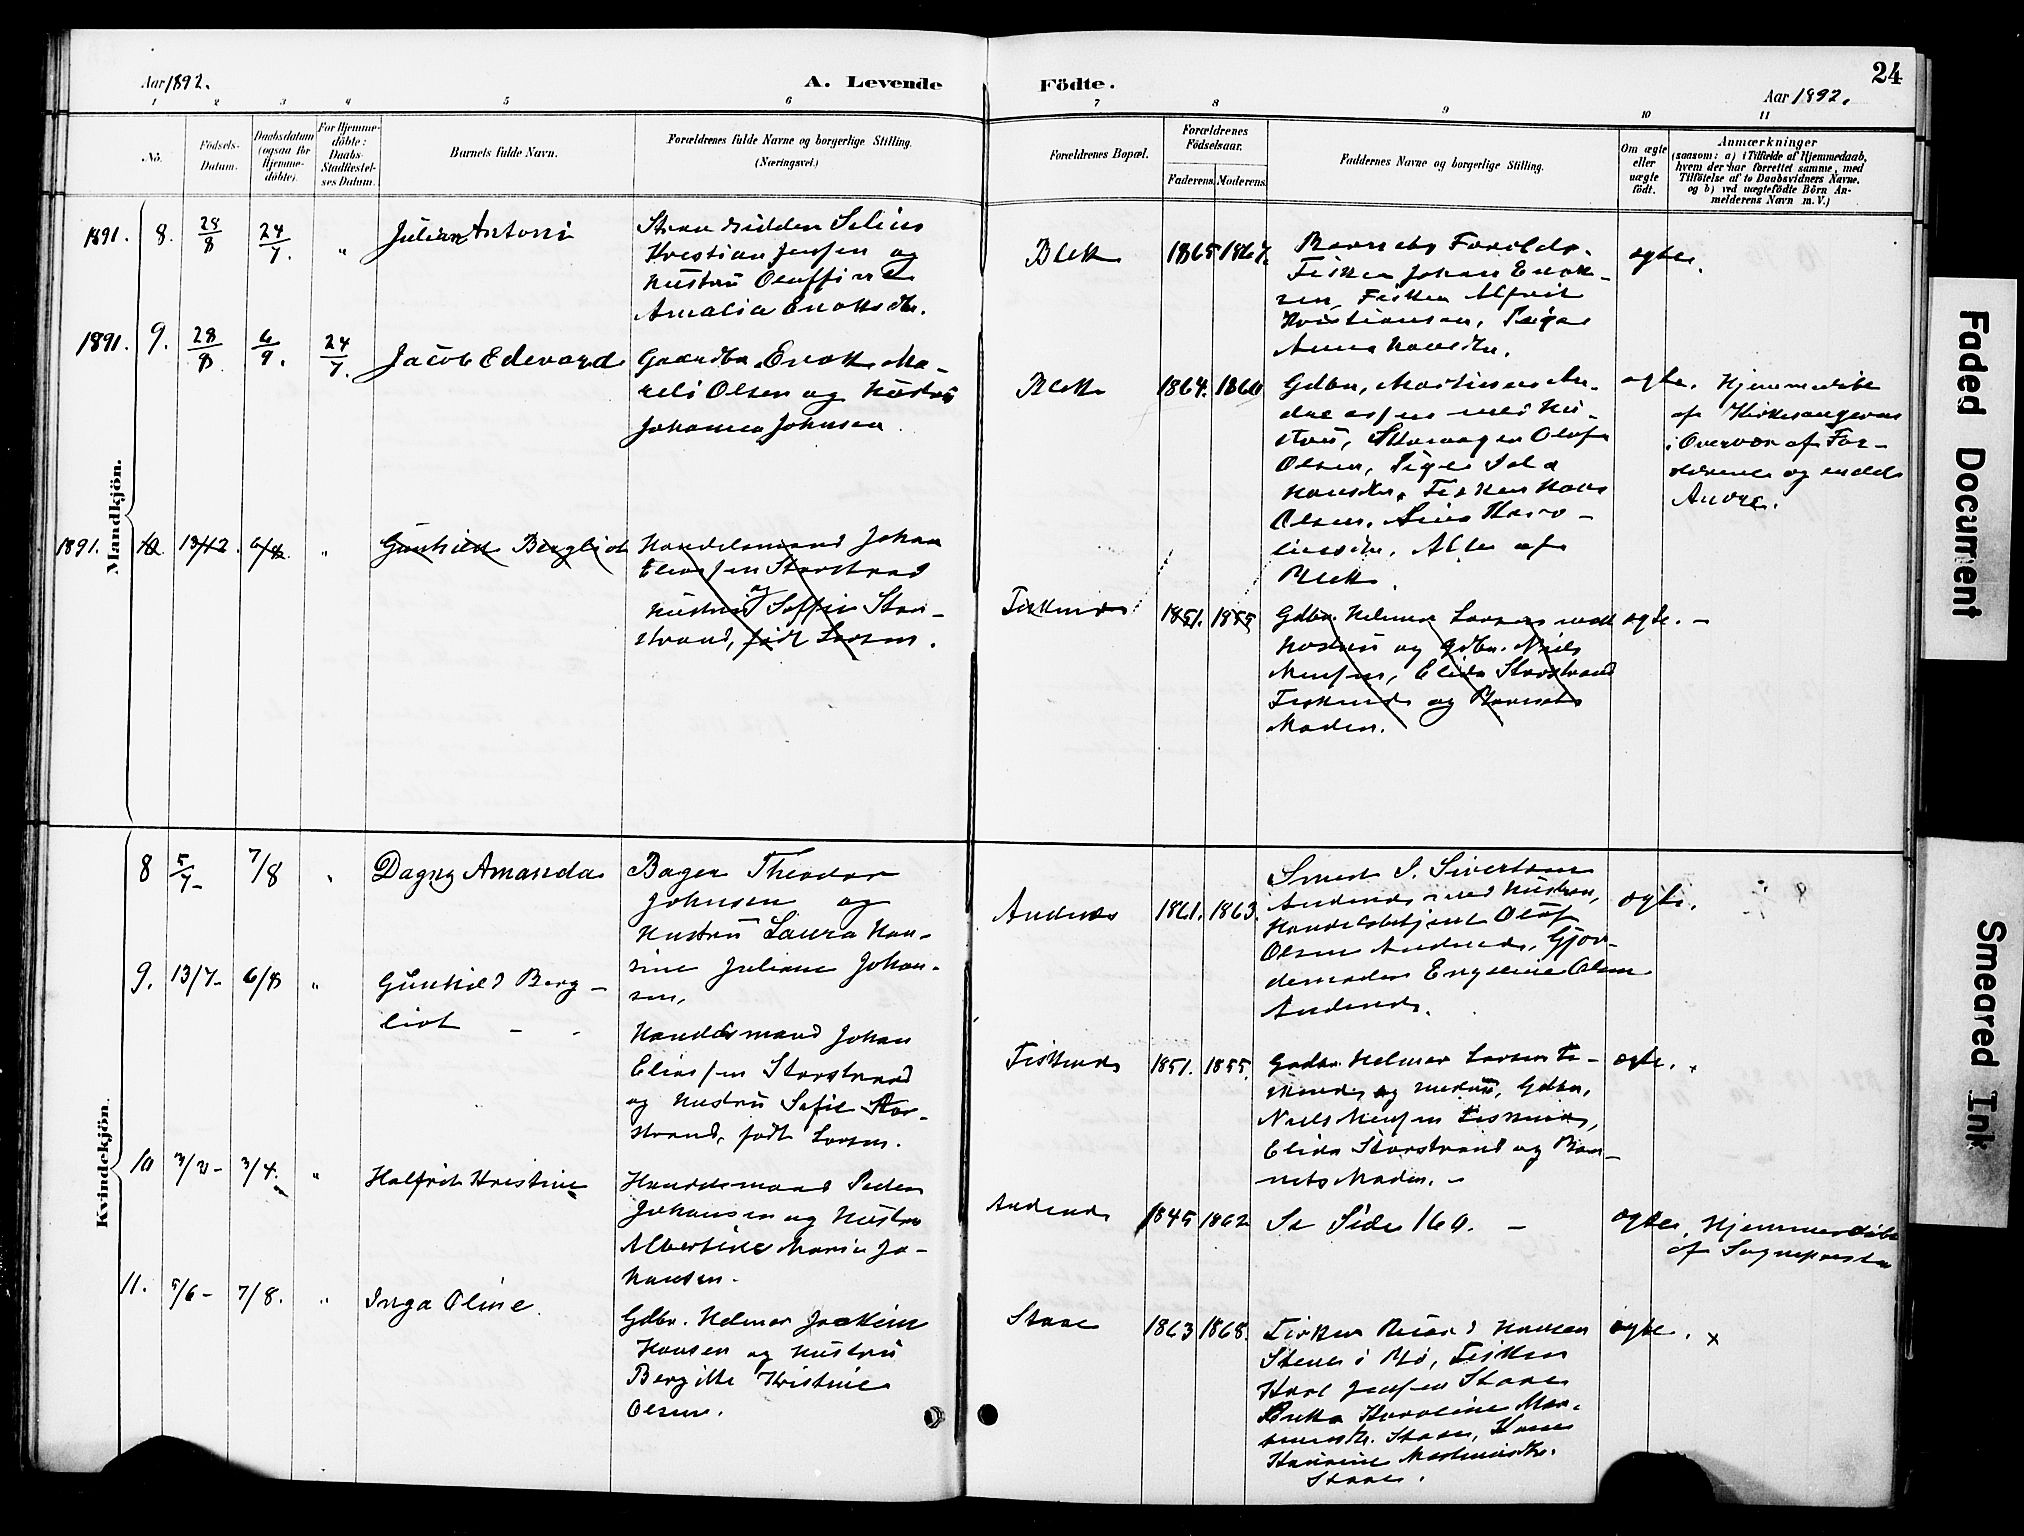 Aar 1892.
A. Levende
Födte.
24
Aar 1892.
1 2 3 4 5 6 7 8 9 10 11
No.
Födsels-
Datum.
Daabsdatum
(ogsaa for
Hjemme-
döbte).
For Hjemme-
döbte:
Daabs-
Stadfæstel-
ses Datum.
Barnets fulde Navn.
Forældrenes fulde Navne og borgerlige Stilling.
(Næringsvei.)
Forældrenes Bopæl.
Forældrenes
Födselsaar.
Faderens.
Moderens.
Faddernes Navne og borgerlige Stilling.
Om ægte
eller
uægte
födt.
Anmærkninger
(saasom: a) i Tilfælde af Hjemmedaab,
hvem der har forrettet samme, med
Tilföielse af to Daabsvidners Navne.
og b) ved uægtefödte Börn An-
melderens Navn m. V.)
Mandkjön.
1891. 8. 28/8 24/7. "
Julian Antoni
Selius
Kristian Jensen og
Hustru Oluffine
Amalia Enoksdtr.
Blek
1865 1867.
Barnets Forældre.
Fisker Johan Enok-
sen, Fisker Alfrit
Kristiansen, Pige
Anna Hansdtr.
ægte.
1891. 9. 28/8 6/9. 24/7.
Jacob Edevard
Gaardbr. Enok Ma-
reli Olsen og Hustru
Johanna Johnsen.
Blek
1864. 1860
Gdbr. Martinus An-
dreassen med Hu-
stru, Olaf
Olsen, Pige
Hansdtr. Fisker Hans
Olsen, Karo-
liusdtr. Alle af
Blek.
ægte.
Hjemmedöbt
af Kirkesangeren
i Overvær af For-
ældrene og
Andre.
1891. 10. 13/12. 6/8. "
Gunhild Bergliot
Handelsmand Johan
Eliassen Storstrand
og
Hustru Soffie Stor-
strand, född Larsen.
Fiskenes
1851. 1855
Gdbr. Helmer Larsen med
Hustru og Gdbr. Niels
Elida Storstrand
Fiskenes og Barnets
Moder.
ægte. -
Kvindekjön.
8 5/7- 7/8 "
Dagny Amanda
Bager Theodor
Johnsen og
Hustru Laura Han-
sine Juliane Johan-
sen.
Andenes
1861. 1863.
Smed S. Sivertsen
Andenes med Hustru,
Handelsbetjent Oluf
Olsen Andenes, Gjor-
demoder Engeline Olsen
Andenes.
ægte.
9. 13/7- 6/8 "
Gunhild Berg-
liot - -
Handelsmand Johan
Eliassen Storstrand
og Hustru Sofie Stor-
strand, födt Larsen.
Fiskenes
1851. 1855.
Gaardbr. Helmer Larsen Fi-
skenes og Hustru, Gdbr.
Niels Fiskenes,
Elida Storstrand og Bar-
nets Moder. -
ægte.
10 3/4. "
Halfrit Kristine
Handelsmand Peder
Johansen og Hustru
Albertine Marie Jo-
hansen.
Andenes
1845 1862
Se Side 160. -
ægte.
Hjemmedöbt
af Sognepresten
11. 5/6- 7/8. "
Inga Oline.
Gdbr. Helmer Joakim
Hansen og Hustru
Bergitte Kristine
Olsen.
Staae
1863 1868.
Fisker Hansen
Steine i Bö, Fisker
Karl Jensen Staae
Karoline Mar-
Staae,
Hansine Martinusdtr.
Staae.
ægte. x
Faded Document
Smeared Ink